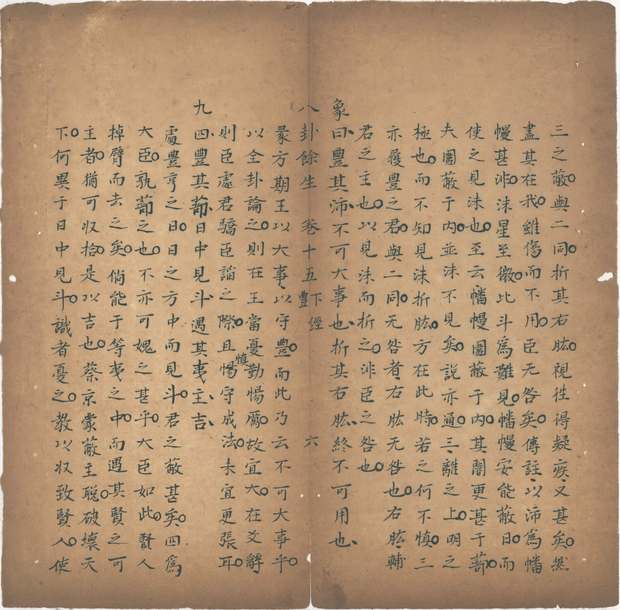 三之蔽與二同折其右肱視徃得疑疾又甚矣然
盡其在我雖傷而不用臣无咎矣傳註以沛為幡
幔甚沛沬星至微比斗為難見幡幔安能蔽日而
使之見沬也至云幡幔圍蔽于内其闇更甚于蔀
夫圍蔽于内並沬不見矣説亦通三離之上明之
極也而不知見沬折肱方在此時若之何不慎三
亦履豐之君與二同无咎者右肱无咎也右肱輔
君之主也以見沬而折之非臣之咎也
象曰豐其沛不可大事也折其右肱終不可用也
八卦餘生 卷十五下經豐 六
彖方期王以大事以守豐而此乃云不可大事乎
以全卦論之則在王當憂勤惕厲故宜大在爻解
則臣處君驕臣諂之際且慎惕守成法未宜更張耳
九四豐其蔀日中見斗遇其夷主吉
處豐亨之日日之方中而見斗君之蔽甚矣四為
大臣孰蔀之也不亦可媿之甚乎大臣如此賢人
掉臂而去之矣倘能于等夷之中而遇其賢之可
主者猶可収拾是以吉也蔡京蒙蔽主聰破壞天
下何異于日中見斗識者憂之教以収致賢人使